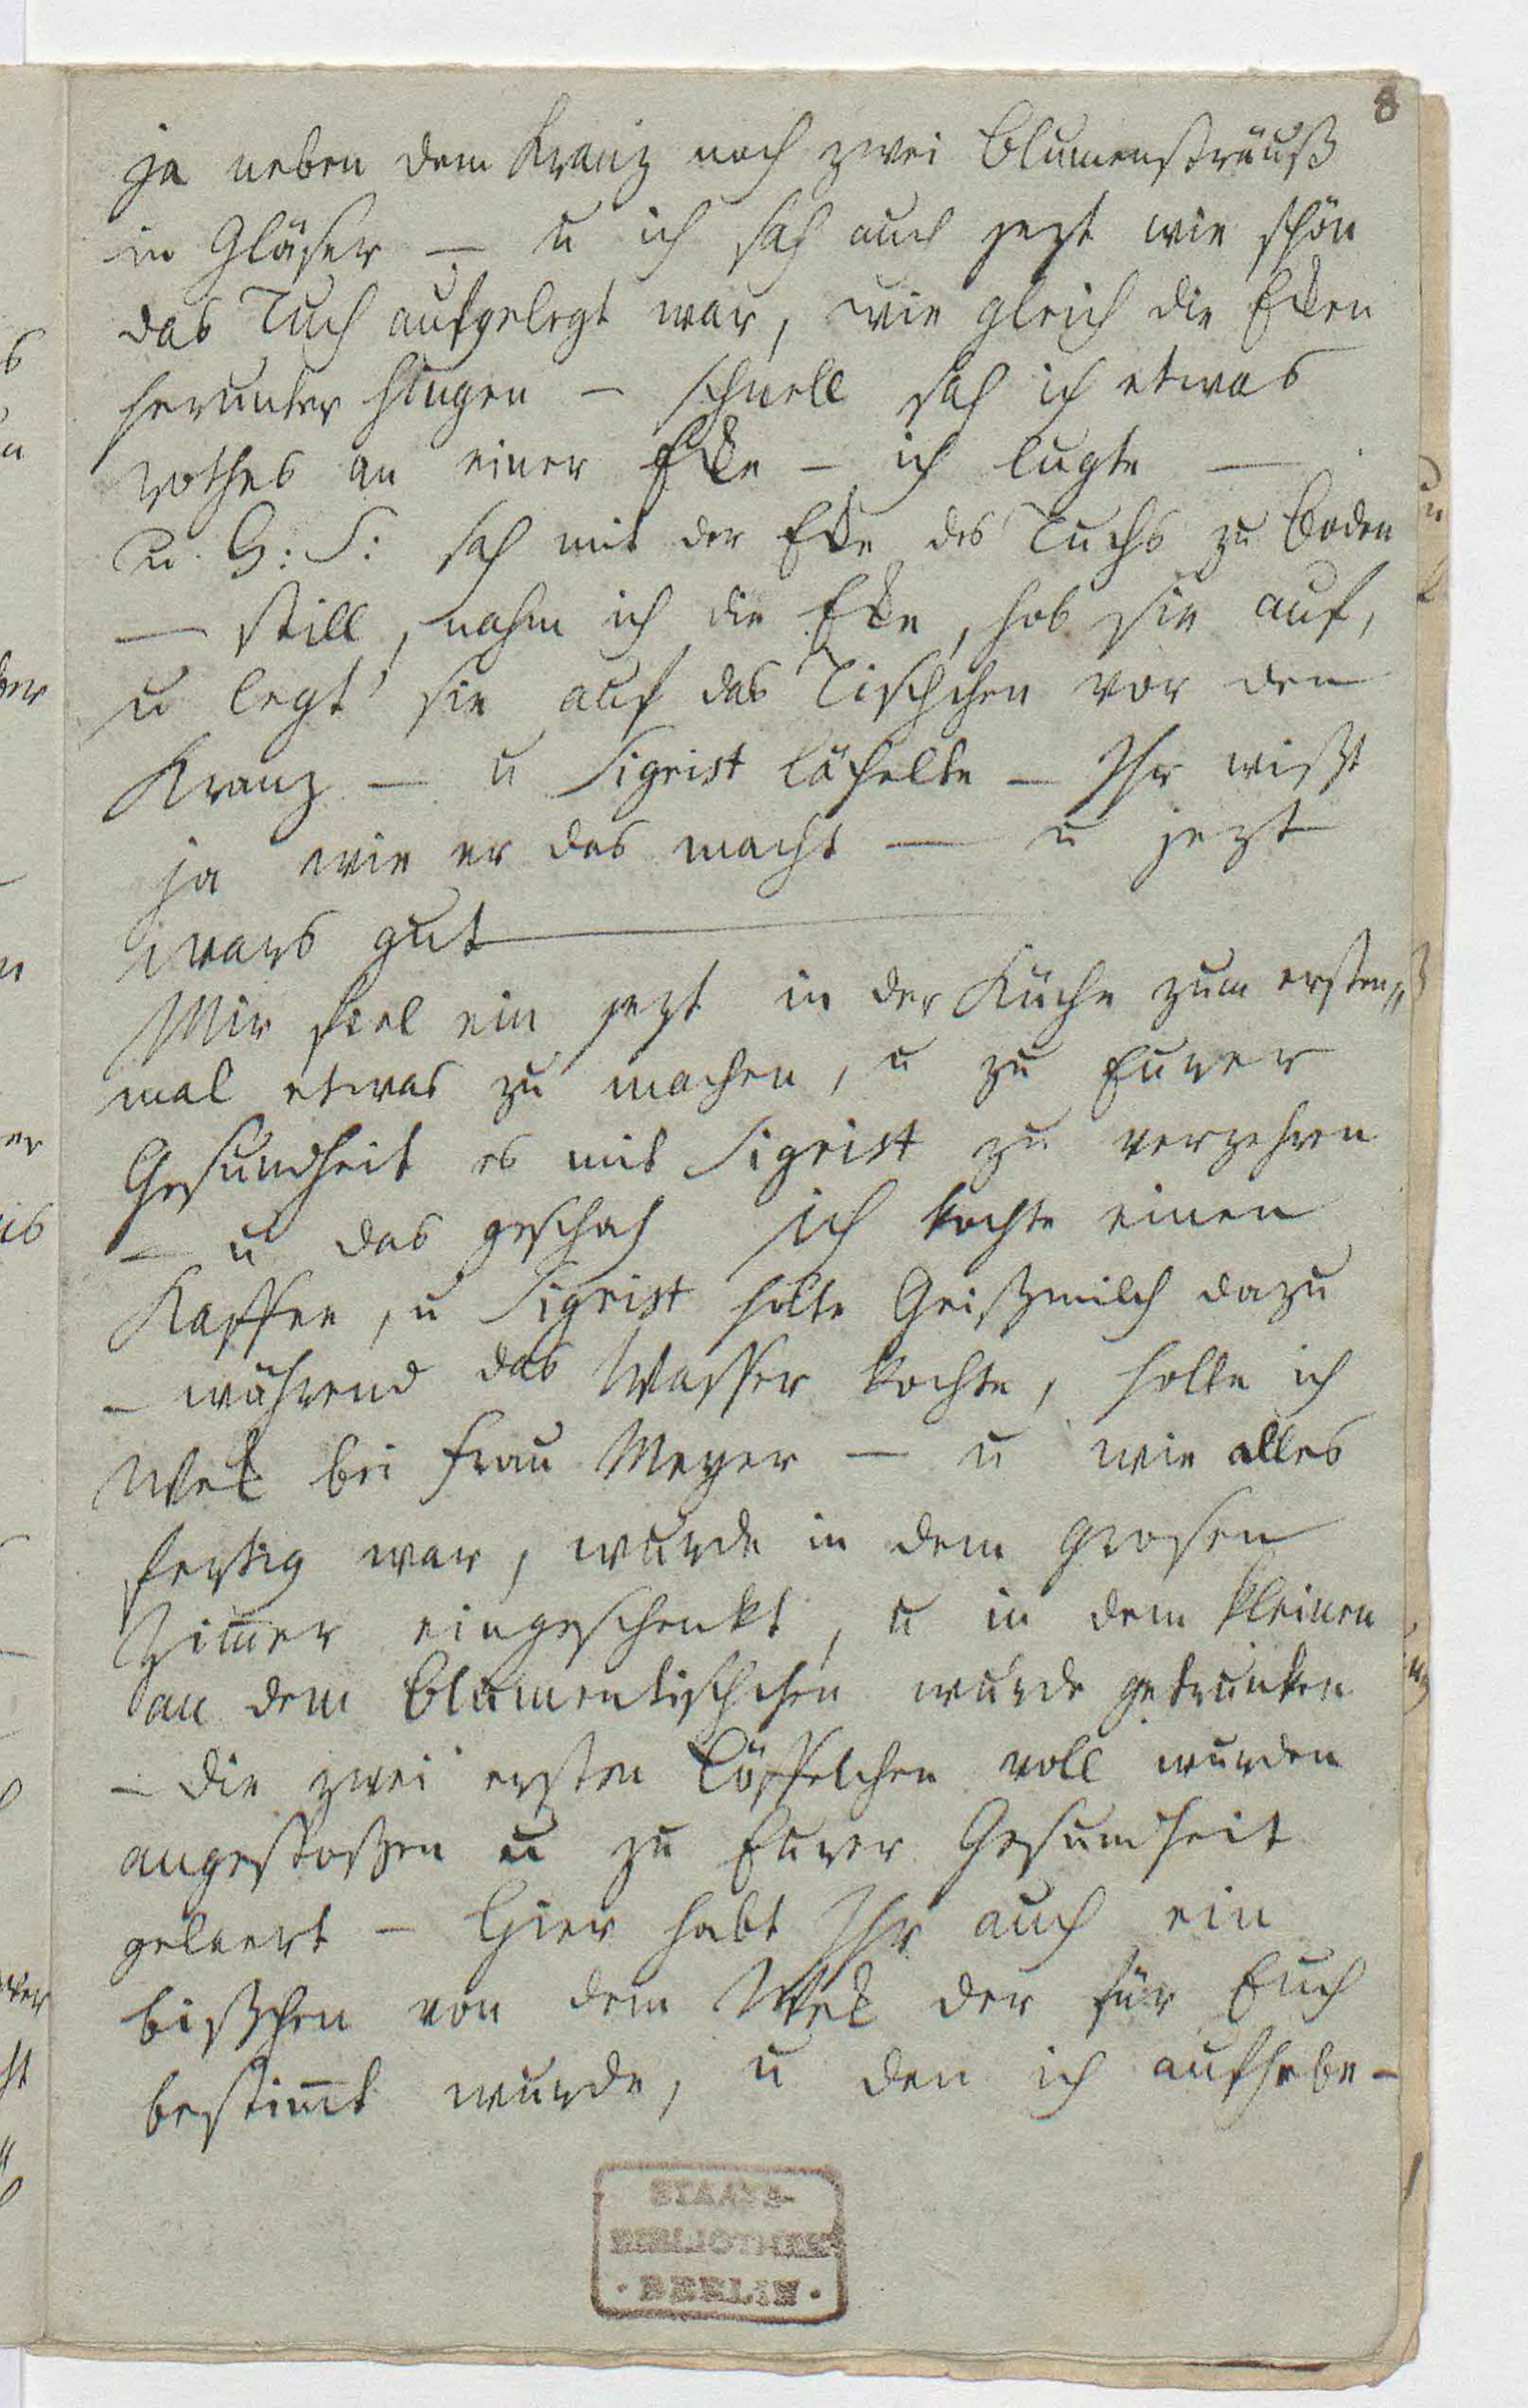 8
ja neben dem Kranz noch zwei Blumensträuß
in Gläser — u ich sah auch jezt wie schön
das Tuch aufgelegt war, wie gleich die Eken
herunter hingen — schnell sah ich etwas
rothes an einer Eke — ich lugte —
u. G: S: sah mit der Eke des Tuchs zu Boden
— still, nahm ich die Eke, hob sie auf,
u legt' sie auf das Tischchen vor den
Kranz — u Sigrist läĥelte — Ihr wißt
ja wie er das macht — u jezt
wars gut —
Mir fiel ein jezt in der Küche zum ersten„
mal etwas zu machen, u zu Eurer
Gesundheit es mit Sigrist zu verzehren
— u das geschah ich kochte einen
Kaffee, u Sigrist holte Geißmilch dazu
— während das Wasser kochte, holte ich
Wek bei Frau Meyer — u wie alles
fertig war, wurde in dem grosen
Zim̄er eingeschenkt, u in dem kleinen
an dem Blumentischchen wurde getrunken
— die zwei ersten Löffelchen voll wurden
angestoßen u zu Eurer Gesundheit
geleert — Hier habt Ihr auch ein
bißchen von dem Wek der für Euch
bestim̄t wurde, u den ich aufhebe —
STAATS-
BIBLIOTHEK
· BERLIN ·